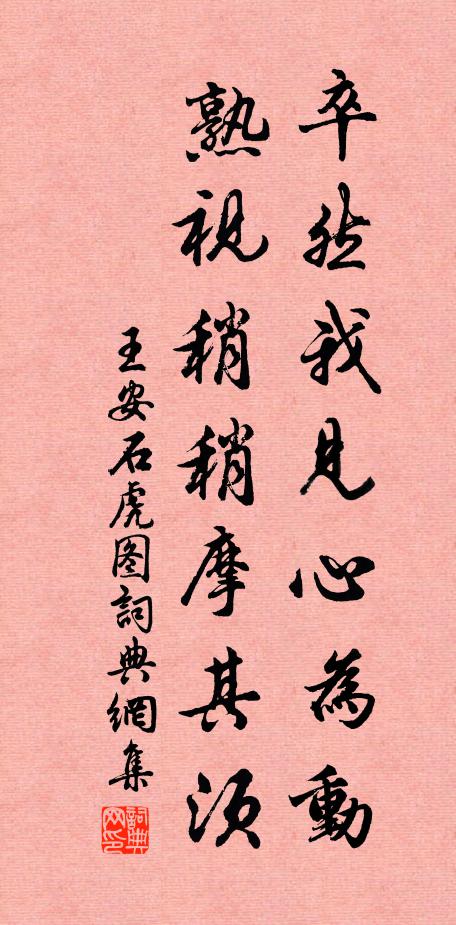 卒然我見心為動
熟視稍稍摩其須
王安石虎图詞典網集
詞典网印